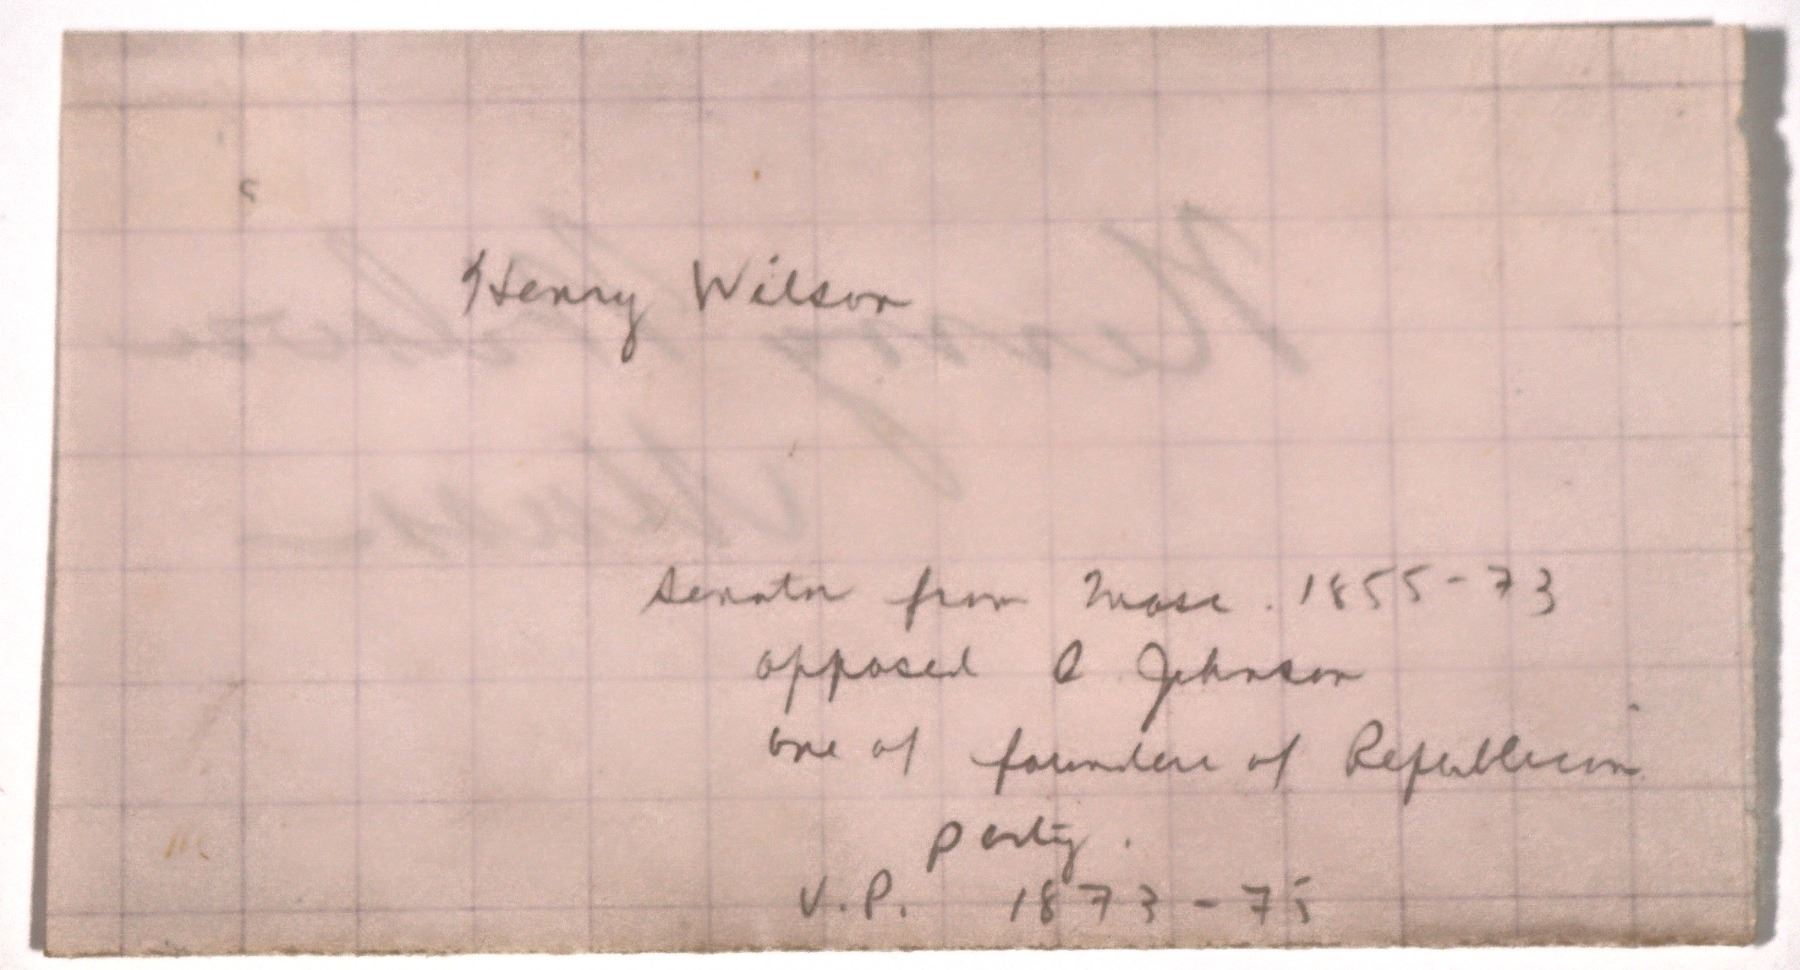 Henry Wilson
Senator from Mass. 1855-73
opposed A Johnson
one of founders of Republican
party.
V.P. 1873-75